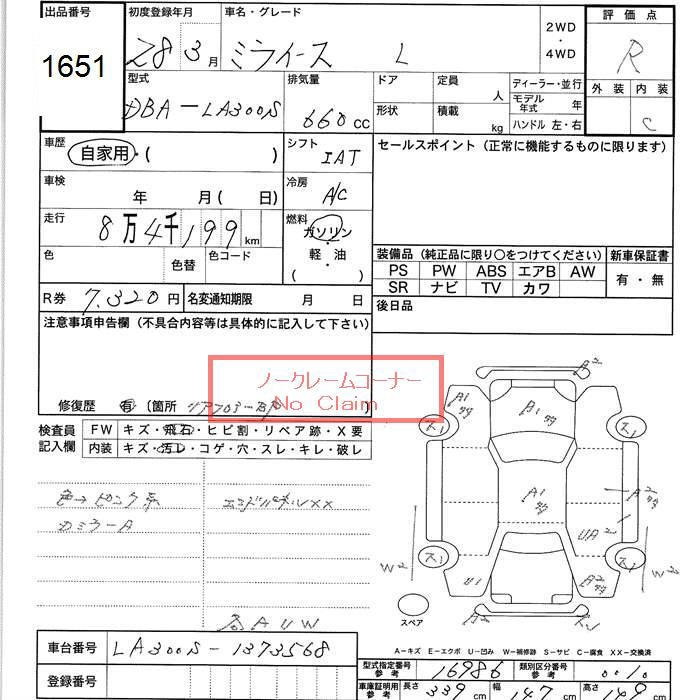 出品番号 初度登録年月 車名・グレード 評価点
1651 28 3月 ミライース L 2WD・4WD R
型式 排気量 ドア 定員 人 ディーラー・並行 外装 内装
DBA-LA300S 660cc 形状 積載 kg モデル年式 年 ハンドル 左・右 C
車歴 自家用・( ) シフト IAT セールスポイント（正常に機能するものに限ります）
車検 年 月( 日) 冷房 A/C
走行 8万4千199km 燃料 ガソリン・軽・油 ( )
色 色替 色コード 装備品（純正品に限り○をつけてください） 新車保証書
PS PW ABS エアB AW 有・無
SR ナビ TV カワ
R券 7,320円 名変通知期限 月 日 後日品
注意事項申告欄（不具合内容等は具体的に記入して下さい）
ノークレームコーナー
No Claim
修復歴 有 〔箇所
検査員記入欄 FW キズ・飛石・ヒビ割・リペア跡・X要
内装 キズ・汚レ・コゲ・穴・スレ・キレ・破レ
色→ピンク系
Dミラー A
A2
A1 B1
A1
A2
UA2
W2 W2
U1 A2
スペア
車台番号 LA300S-1373568
A-キズ E-エクボ U-凹み W-補修跡 S-サビ C-腐食 XX-交換済
登録番号 型式指定番号参考 16986 類別区分番号参考 0010
車庫証明用参考 長さ 339cm 幅 147cm 高さ 149cm